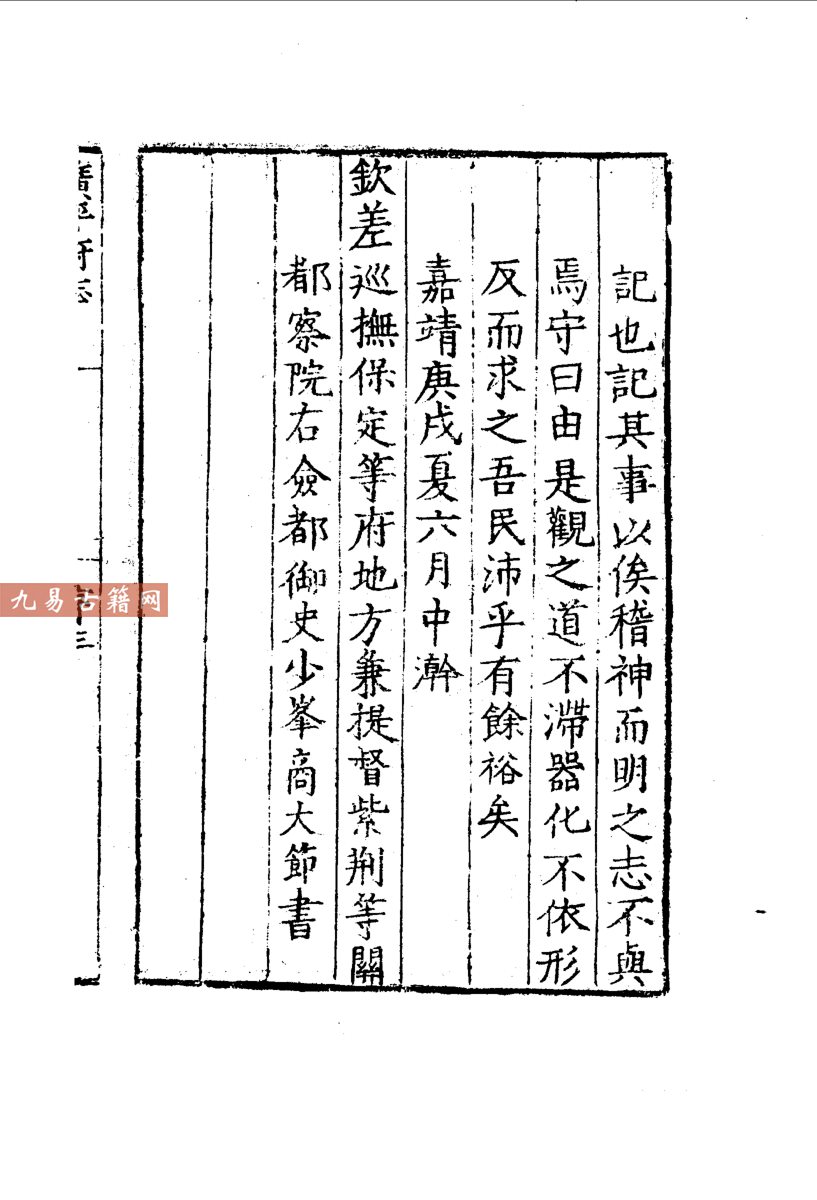 記也記其事以俟稽神而明之志不與
焉守曰由是觀之道不滯器化不依形
反而求之吾民沛乎有餘裕矣
嘉靖庚戌夏六月中澣
欽差巡撫保定等府地方兼提督紫荆等關
都察院右僉都御史少峯商大節書
廣平府志
三
九易古籍网